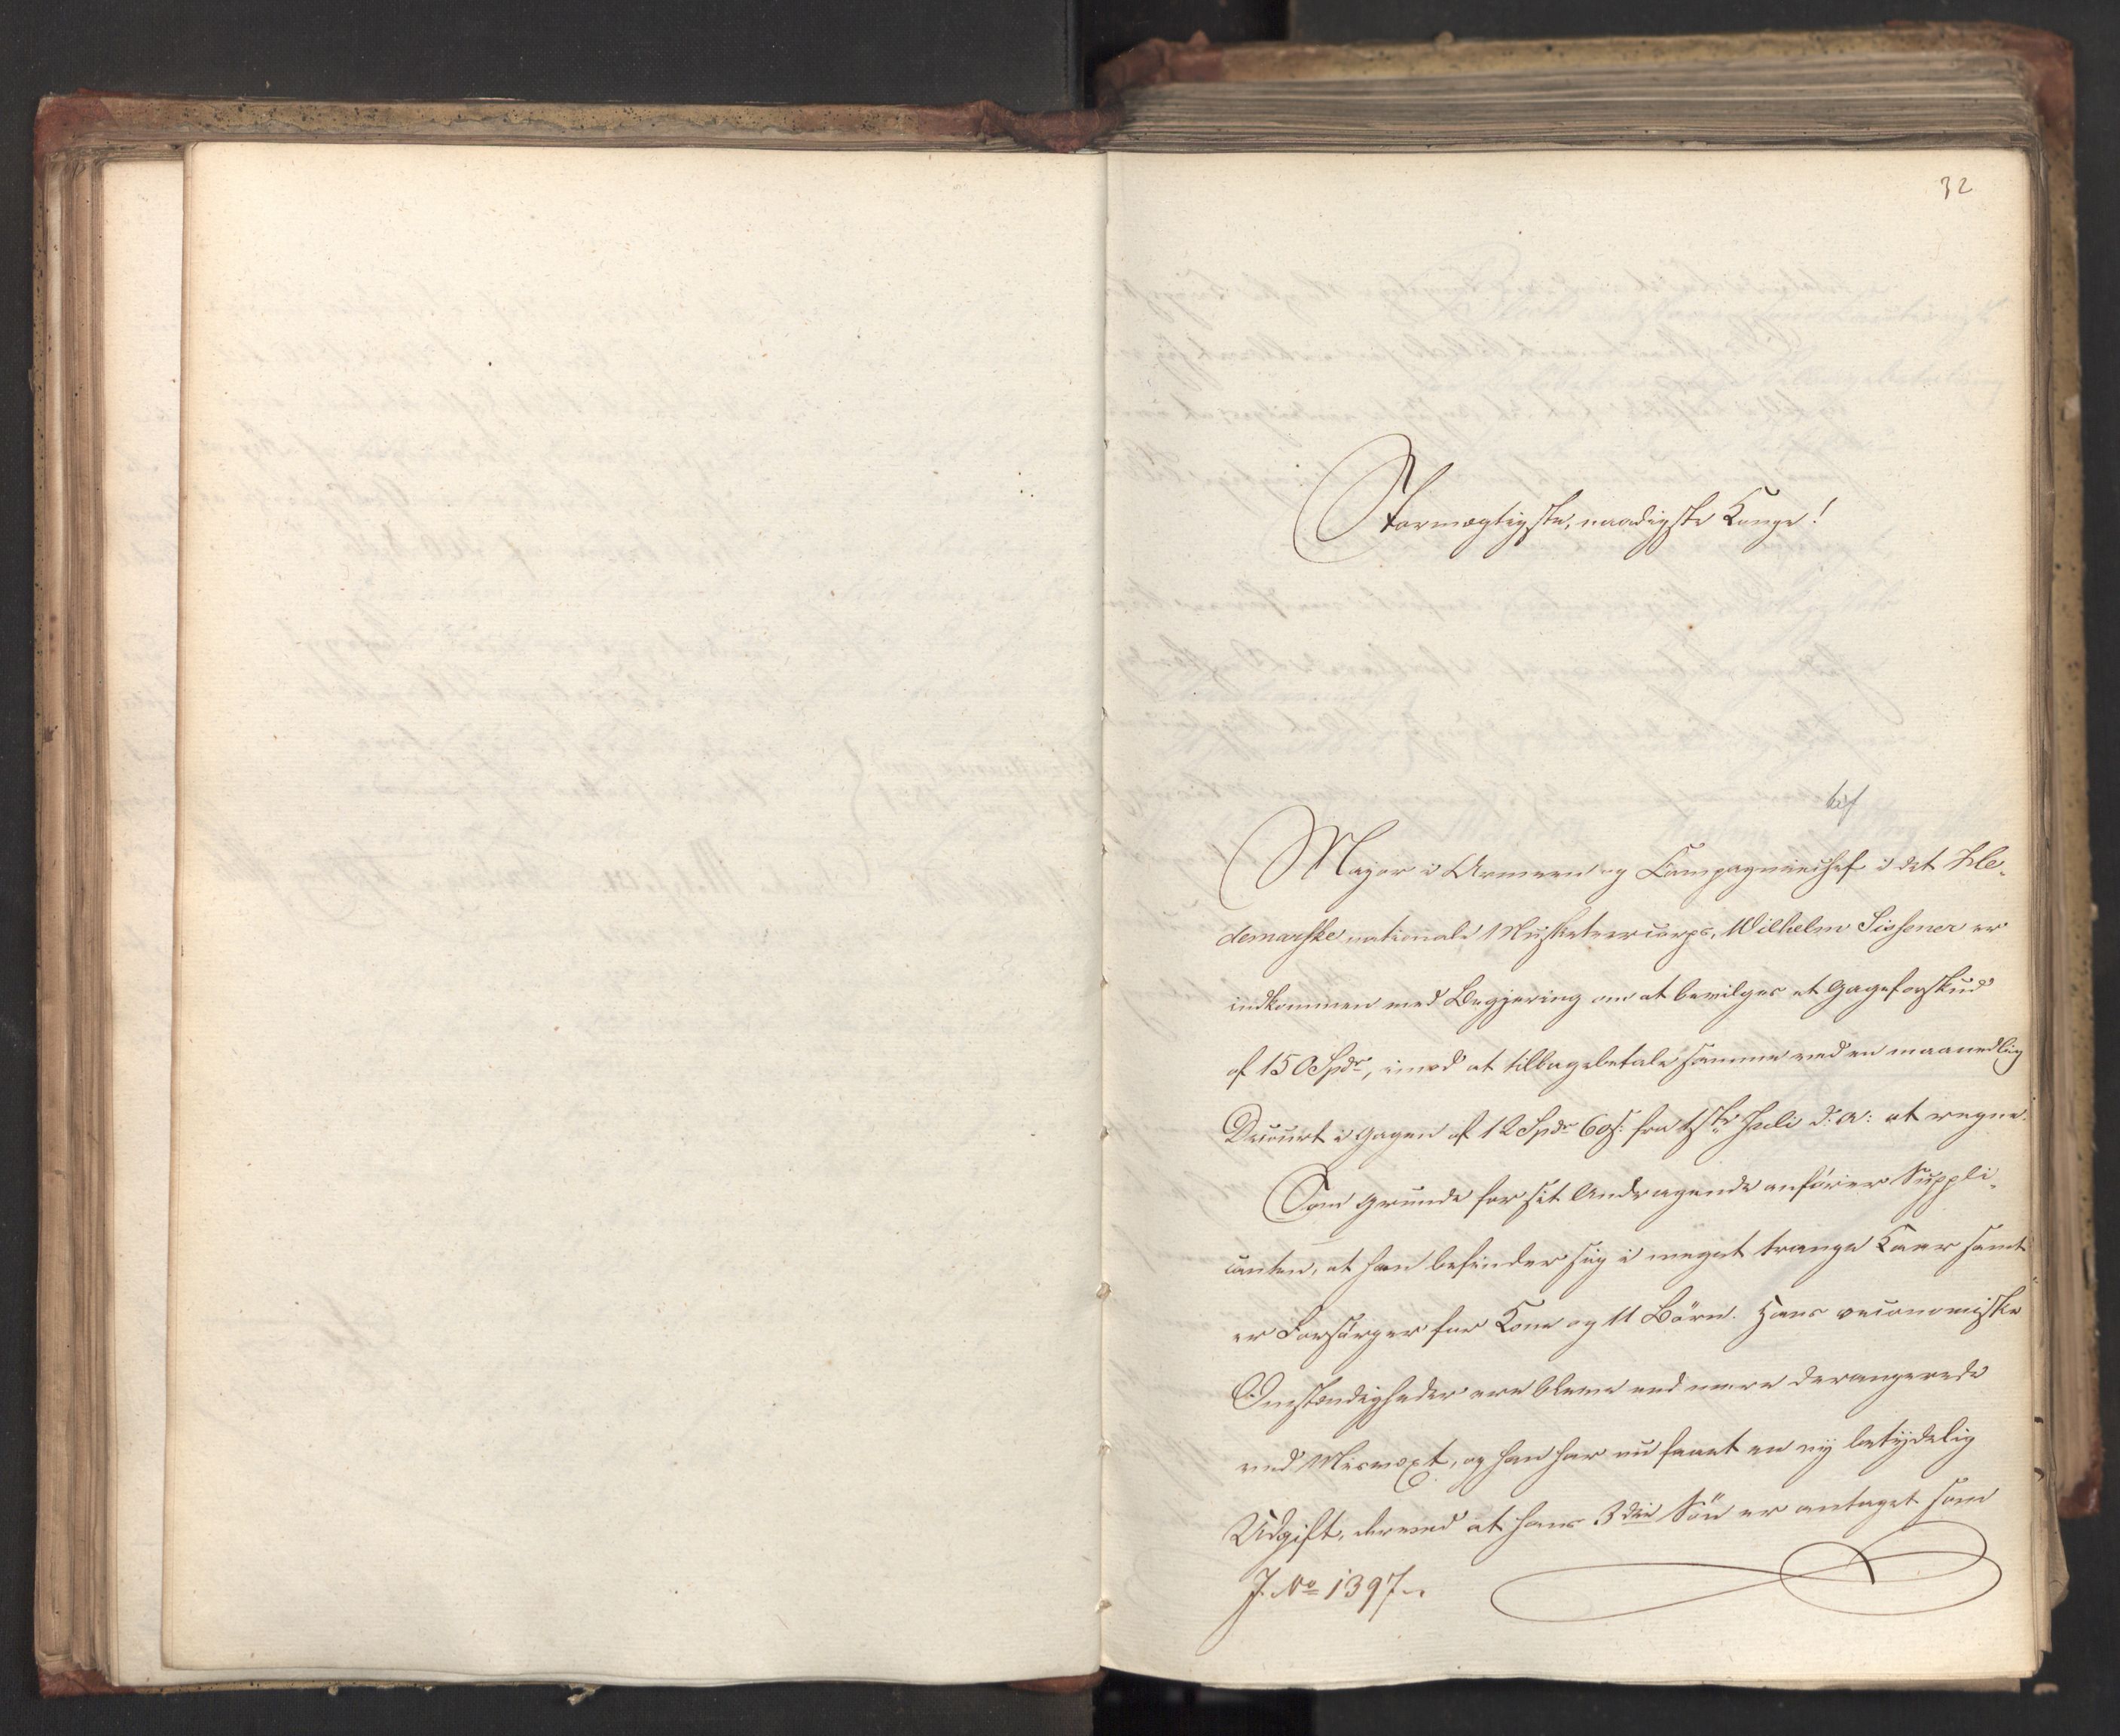 32
Stormægtigste, naadigste Konge!
Major i Armeen og Compagniechef i det Hle-
demarske nationale Musketeercorps, Wilhelm Sissener er
indkommen med Begjæring om at bevilges et Gageforskud
af 150 Spdr, imod at tilbagebetale samme med en maanedlig
Decourt i Gagen af 12 Spdr 60 s: fra 1ste Juli d: A: at regne.
Som Grunde for sit Andragende anförer Suppli-
canten, at han befinder sig i meget trange Kaar samt
er Forsörger for Kone og 11 Börn. Hans oeconomiske
Omstændigheder ere blevne end mere derangerede
ved Misvæxt, og han har nu faaet en ny betydelig
Udgift, derved at hans 3die Sön er antaget som
J. No 1397.